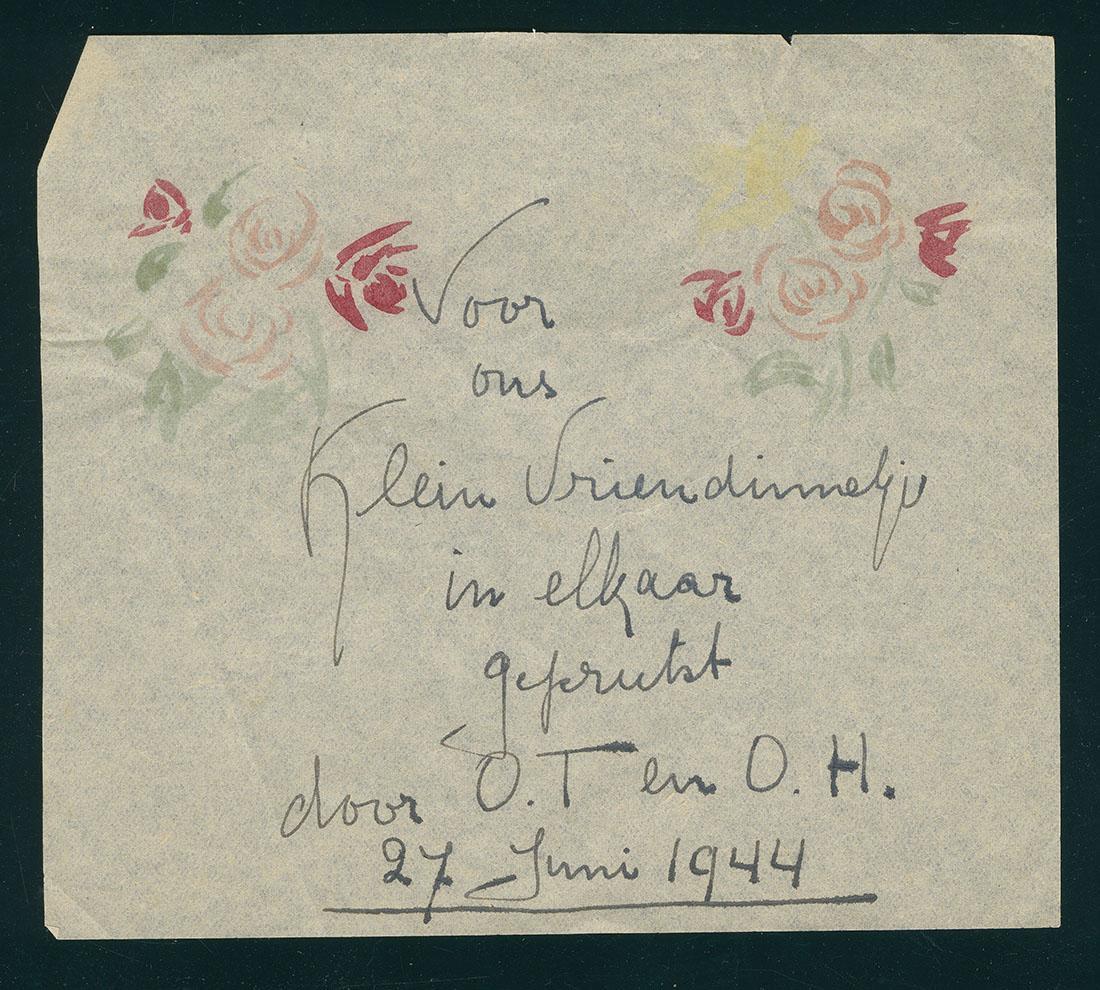 Voor
ons
Klein Vriendinnetje
in elkaar
geprutst
door O.T en O.H.
27 Juni 1944